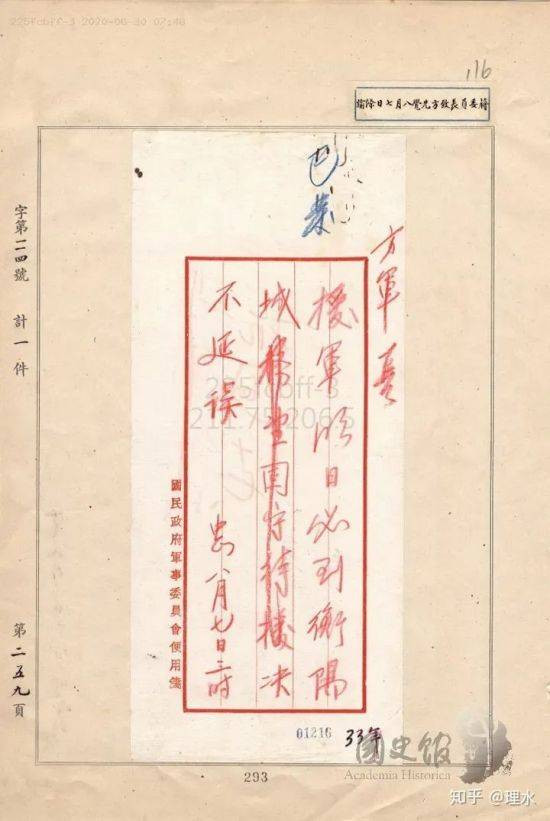 225fcbff-3 2020-06-30 07:46
116
蔣委員長致方先覺八月七日諭
已
方軍長
援軍明日必到衡陽
城務望固守待援決
不延誤
八月七日
國民政府軍事委員會便用箋
225fcbff-3
211.75.206.5
字第一二四號 計一件 第二五九頁
01216 33年
293
國史館
Academia Historica
知乎 @理水